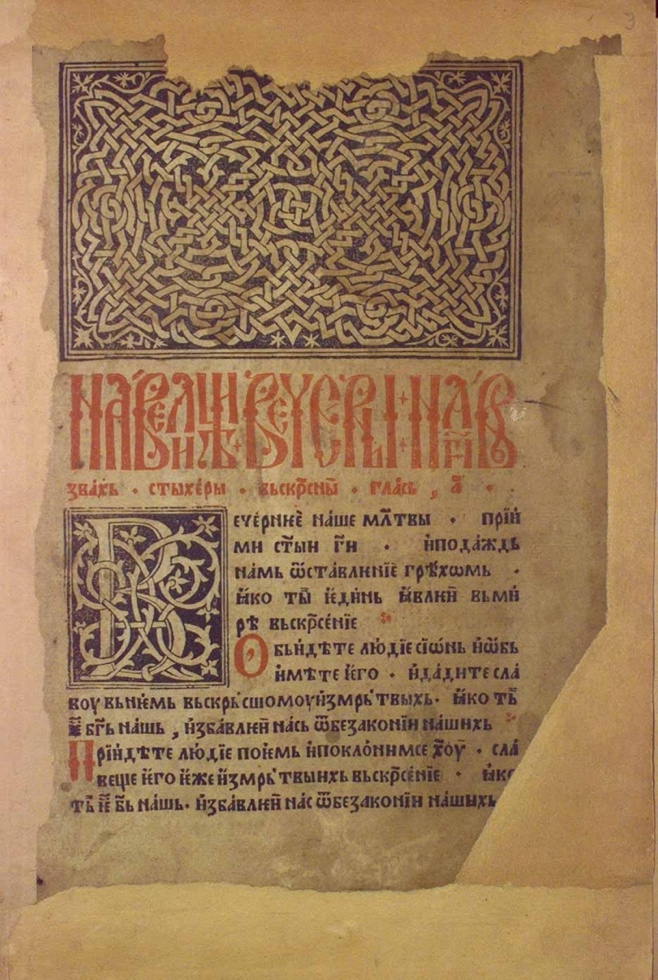 3
НА ВЕЛИЦѢИ ВЕЧЕРНЫ · НА Г҃И В
звахь · стыхеры · вьскрⷭ҇ны · глась , а҃ ·
Вечернѥе наше мл҃твы · прїи
ми ст҃ыи г҃и · и подаждь
намь ѿставлѥнїе грѣхѡмь ·
ꙗко ты ѥдинь ꙗвлѥи вь ми
рѣ вьскрⷭ҇енїе
Обьидѣте людїе сїѡнь и ѡбь
имѣте ѥго · и дадите сла
воу вь нѥмь вьскрьсшомоу из мрьтвыхь · ꙗко ть
ѥ҃ б҃гь нашь , избавлѥи нась ѿ безаконїи нашихь
Прїидѣте людїе поѥмь и поклонимсе х҃оу · сла
веще ѥго ѥже из мрьтвыихь вьскрⷭ҇енїе · ꙗко
ть ѥ҃ б҃ь нашь · избавлѥи нас ѿ безаконїи нашихь